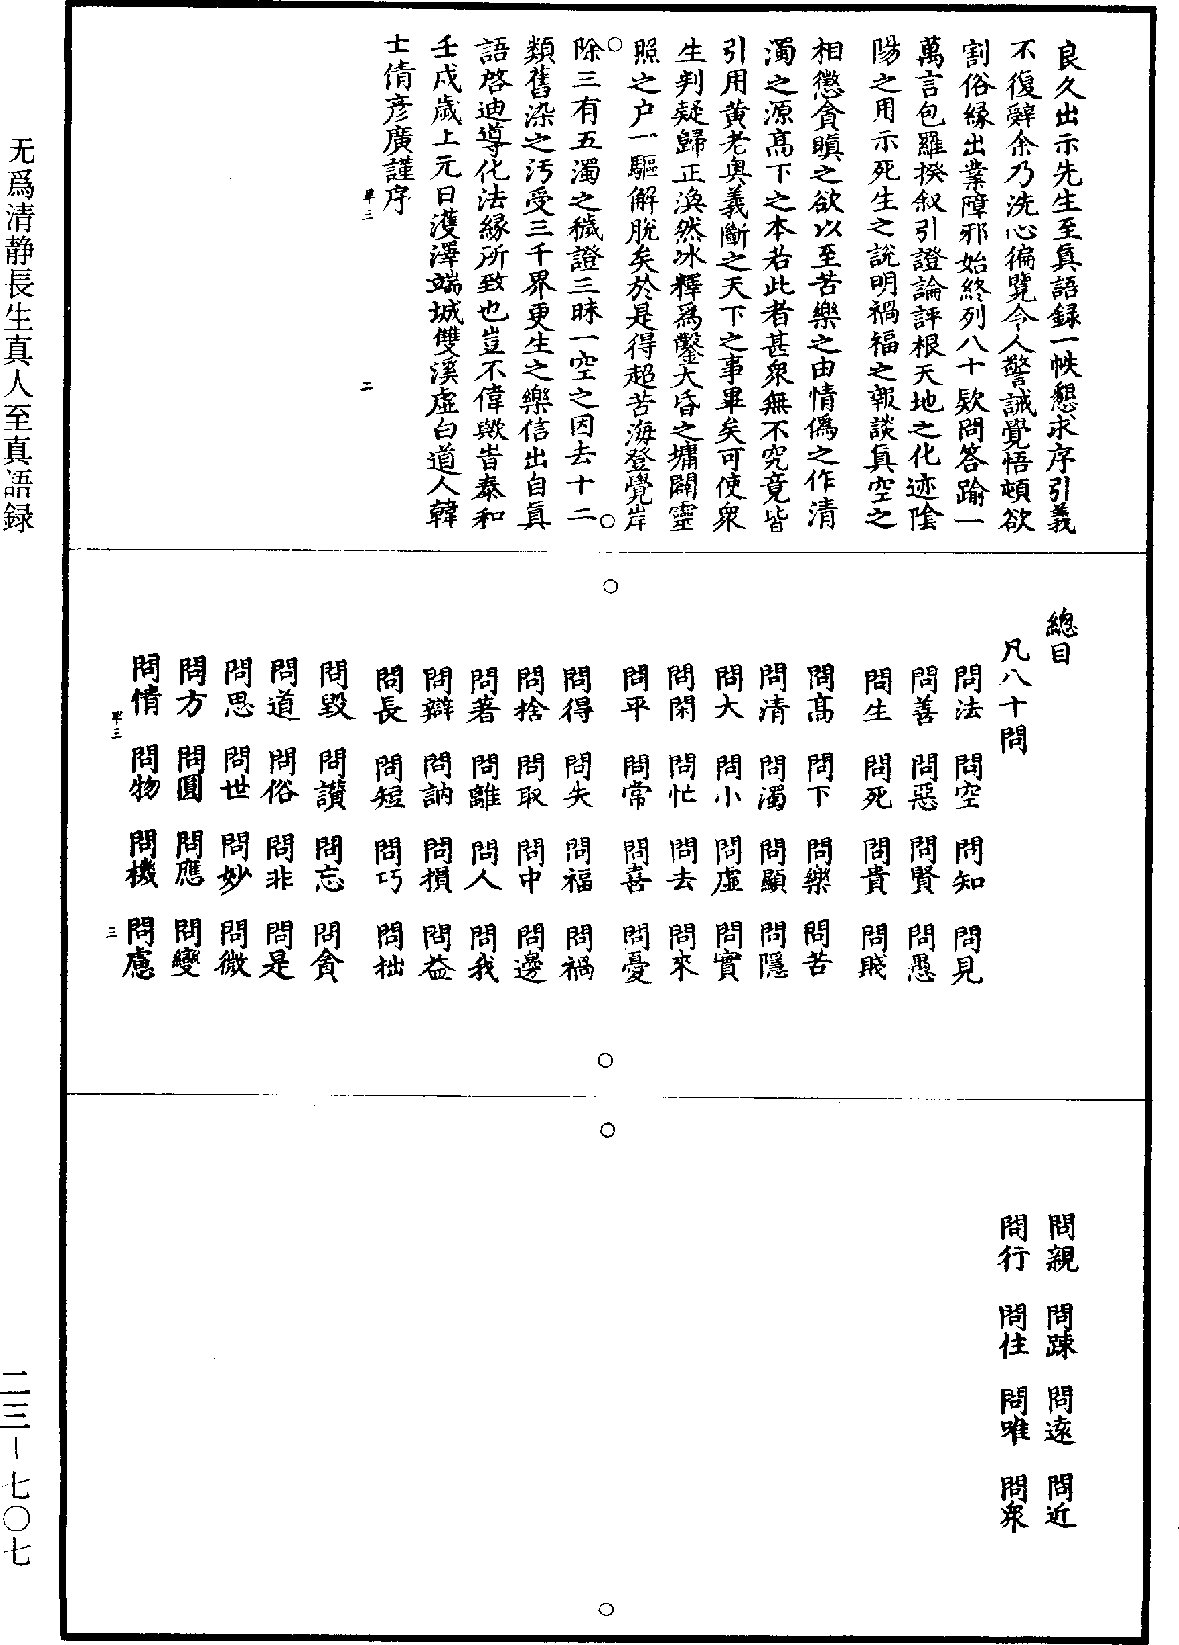 良久出示先生至真語録一帙懇求序引義
不復辭余乃洗心徧覽令人警誡覺悟頓欲
割俗緣出業障邪始終列八十欵問答踰一
萬言包羅揆叙引證論評根天地之化迹陰
陽之用示死生之說明禍福之報談真空之
相懲貪瞋之欲以至苦樂之由情偽之作清
濁之源高下之本若此者甚衆無不究竟皆
引用黄老奥義斷之天下之事畢矣可使衆
生判疑歸正渙然冰釋為鑿大昏之墉闢靈
照之户一驅解脫矣於是得超苦海登覺岸
除三有五濁之穢證三昧一空之因去十二
類舊染之污受三千界更生之樂信出自真
語啓迪導化法緣所致也豈不偉歟旹泰和
壬戌歲上元日濩澤端城雙溪虛白道人韓
士倩彦廣謹序
單三
二
總目
凡八十問
問法 問空 問知 問見
問善 問惡 問賢 問愚
問生 問死 問貴 問賤
問高 問下 問樂 問苦
問清 問濁 問顯 問隱
問大 問小 問虛 問實
問閑 問忙 問去 問來
問平 問常 問喜 問憂
問得 問失 問福 問禍
問捨 問取 問中 問邊
問著 問離 問人 問我
問辯 問訥 問損 問益
問長 問短 問巧 問拙
問毀 問讚 問忘 問貪
問道 問俗 問非 問是
問思 問世 問妙 問微
問方 問圓 問應 問變
問情 問物 問機 問慮
單三
三
問親 問踈 問遠 問近
問行 問住 問唯 問衆
无爲清静長生真人至真語録
二三—七〇七